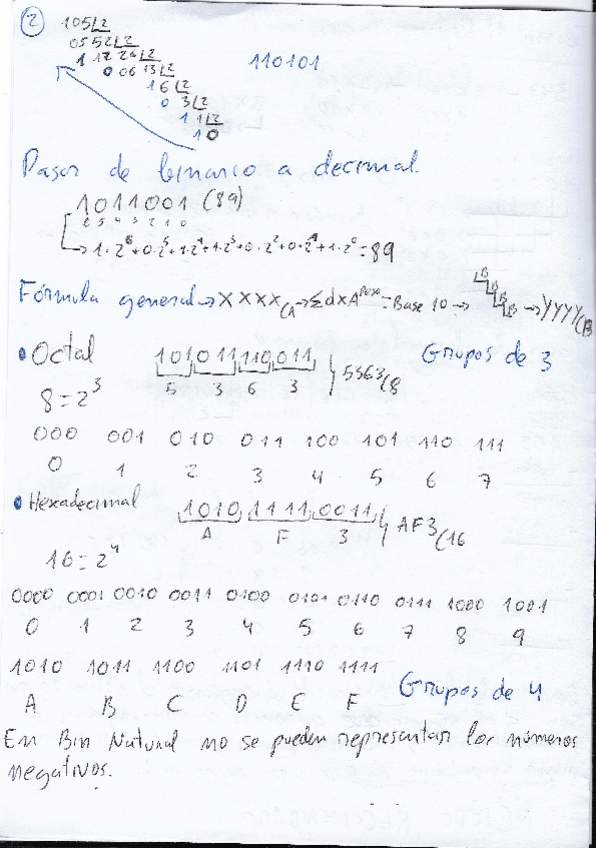 2
105 | 2
05 52 | 2
1 12 26 | 2
0 06 13 | 2
1 6 | 2
0 3 | 2
1 1 | 2
1 0
110101
Pasar de binario a decimal.
1011001 (89)
6 5 4 3 2 1 0
→ 1·2⁶+0·2⁵+1·2⁴+1·2³+0·2²+0·2¹+1·2⁰=89
Fórmula general → XXXX(A → ΣdxA^Peso = Base 10 → LB LB LB LB → YYYY(B
• Octal 101 011 110 011 } 5363(8 Grupos de 3
5 3 6 3
8=2³
000 001 010 011 100 101 110 111
0 1 2 3 4 5 6 7
• Hexadecimal 1010 1111 0011 } AF3(16
A F 3
16=2⁴
0000 0001 0010 0011 0100 0101 0110 0111 1000 1001
0 1 2 3 4 5 6 7 8 9
1010 1011 1100 1101 1110 1111
A B C D E F
Grupos de 4
En Bin Natural no se pueden representar los números
negativos.